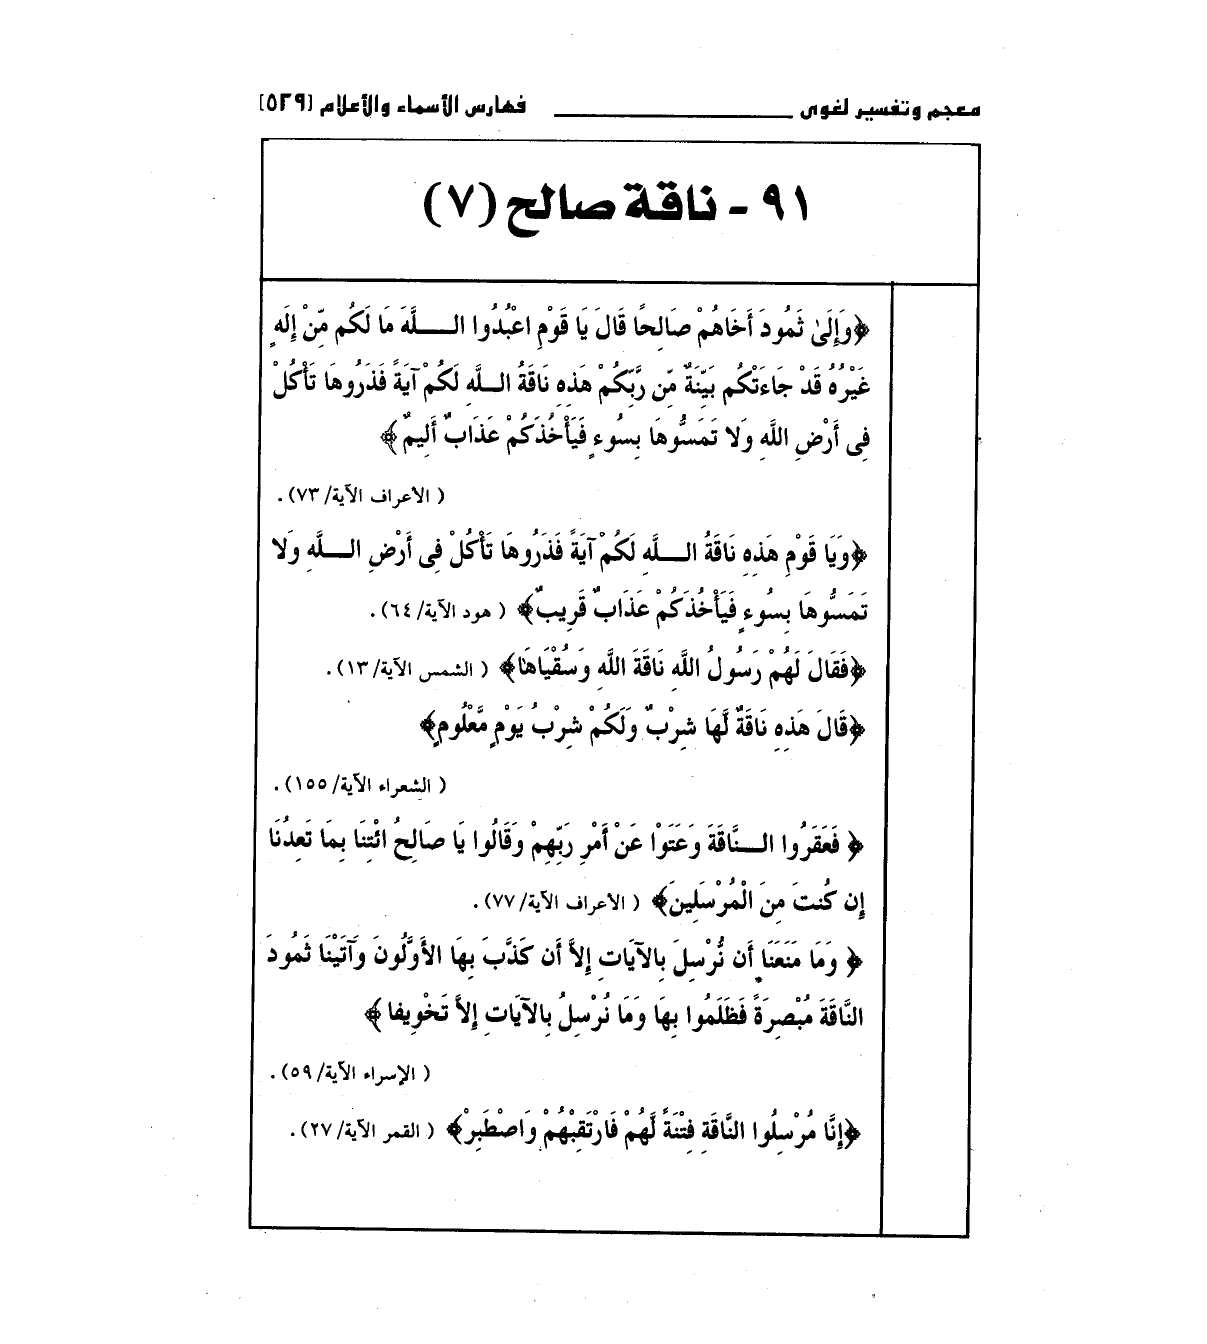 معجم وتفسير لغوى ــــــــــ فهارس الأسماء والأعلام [٥٢٩]
٩١ - ناقة صالح (٧)
﴿وَإِلَىٰ ثَمُودَ أَخَاهُمْ صَالِحًا قَالَ يَا قَوْمِ اعْبُدُوا اللَّهَ مَا لَكُم مِّنْ إِلَهٍ
غَيْرُهُ قَدْ جَاءَتْكُم بَيِّنَةٌ مِّن رَّبِّكُمْ هَذِهِ نَاقَةُ اللَّهِ لَكُمْ آيَةً فَذَرُوهَا تَأْكُلْ
فِى أَرْضِ اللَّهِ وَلا تَمَسُّوهَا بِسُوءٍ فَيَأْخُذَكُمْ عَذَابٌ أَلِيمٌ﴾
( الأعراف الآية/ ٧٣).
﴿وَيَا قَوْمِ هَذِهِ نَاقَةُ اللَّهِ لَكُمْ آيَةً فَذَرُوهَا تَأْكُلْ فِى أَرْضِ اللَّهِ وَلا
تَمَسُّوهَا بِسُوءٍ فَيَأْخُذَكُمْ عَذَابٌ قَرِيبٌ﴾ ( هود الآية/ ٦٤).
﴿فَقَالَ لَهُمْ رَسُولُ اللَّهِ نَاقَةَ اللَّهِ وَسُقْيَاهَا﴾ ( الشمس الآية/ ١٣).
﴿قَالَ هَذِهِ نَاقَةٌ لَّهَا شِرْبٌ وَلَكُمْ شِرْبُ يَوْمٍ مَّعْلُومٍ﴾
( الشعراء الآية/ ١٥٥).
﴿ فَعَقَرُوا النَّاقَةَ وَعَتَوْا عَنْ أَمْرِ رَبِّهِمْ وَقَالُوا يَا صَالِحُ ائْتِنَا بِمَا تَعِدُنَا
إِن كُنتَ مِنَ الْمُرْسَلِينَ﴾ ( الأعراف الآية/ ٧٧).
﴿ وَمَا مَنَعَنَا أَن نُّرْسِلَ بِالآيَاتِ إِلاَّ أَن كَذَّبَ بِهَا الأَوَّلُونَ وَآتَيْنَا ثَمُودَ
النَّاقَةَ مُبْصِرَةً فَظَلَمُوا بِهَا وَمَا نُرْسِلُ بِالآيَاتِ إِلاَّ تَخْوِيفا ﴾
( الإسراء الآية/ ٥٩).
﴿إِنَّا مُرْسِلُوا النَّاقَةِ فِتْنَةً لَّهُمْ فَارْتَقِبْهُمْ وَاصْطَبِرْ﴾ ( القمر الآية/ ٢٧).